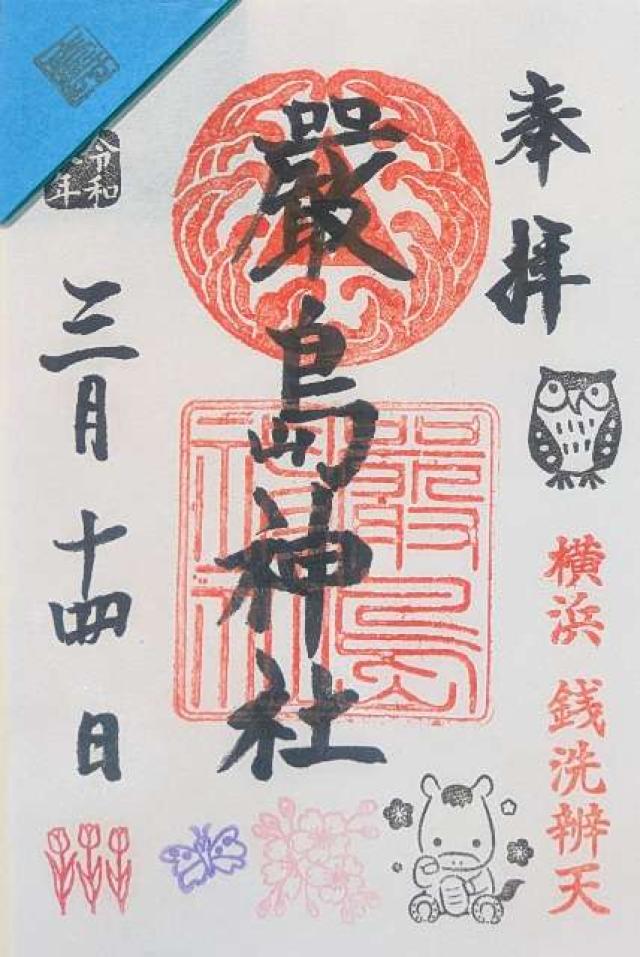 奉拝
横浜 銭洗辨天
嚴島神社
嚴島神社
令和
年
三月十四日